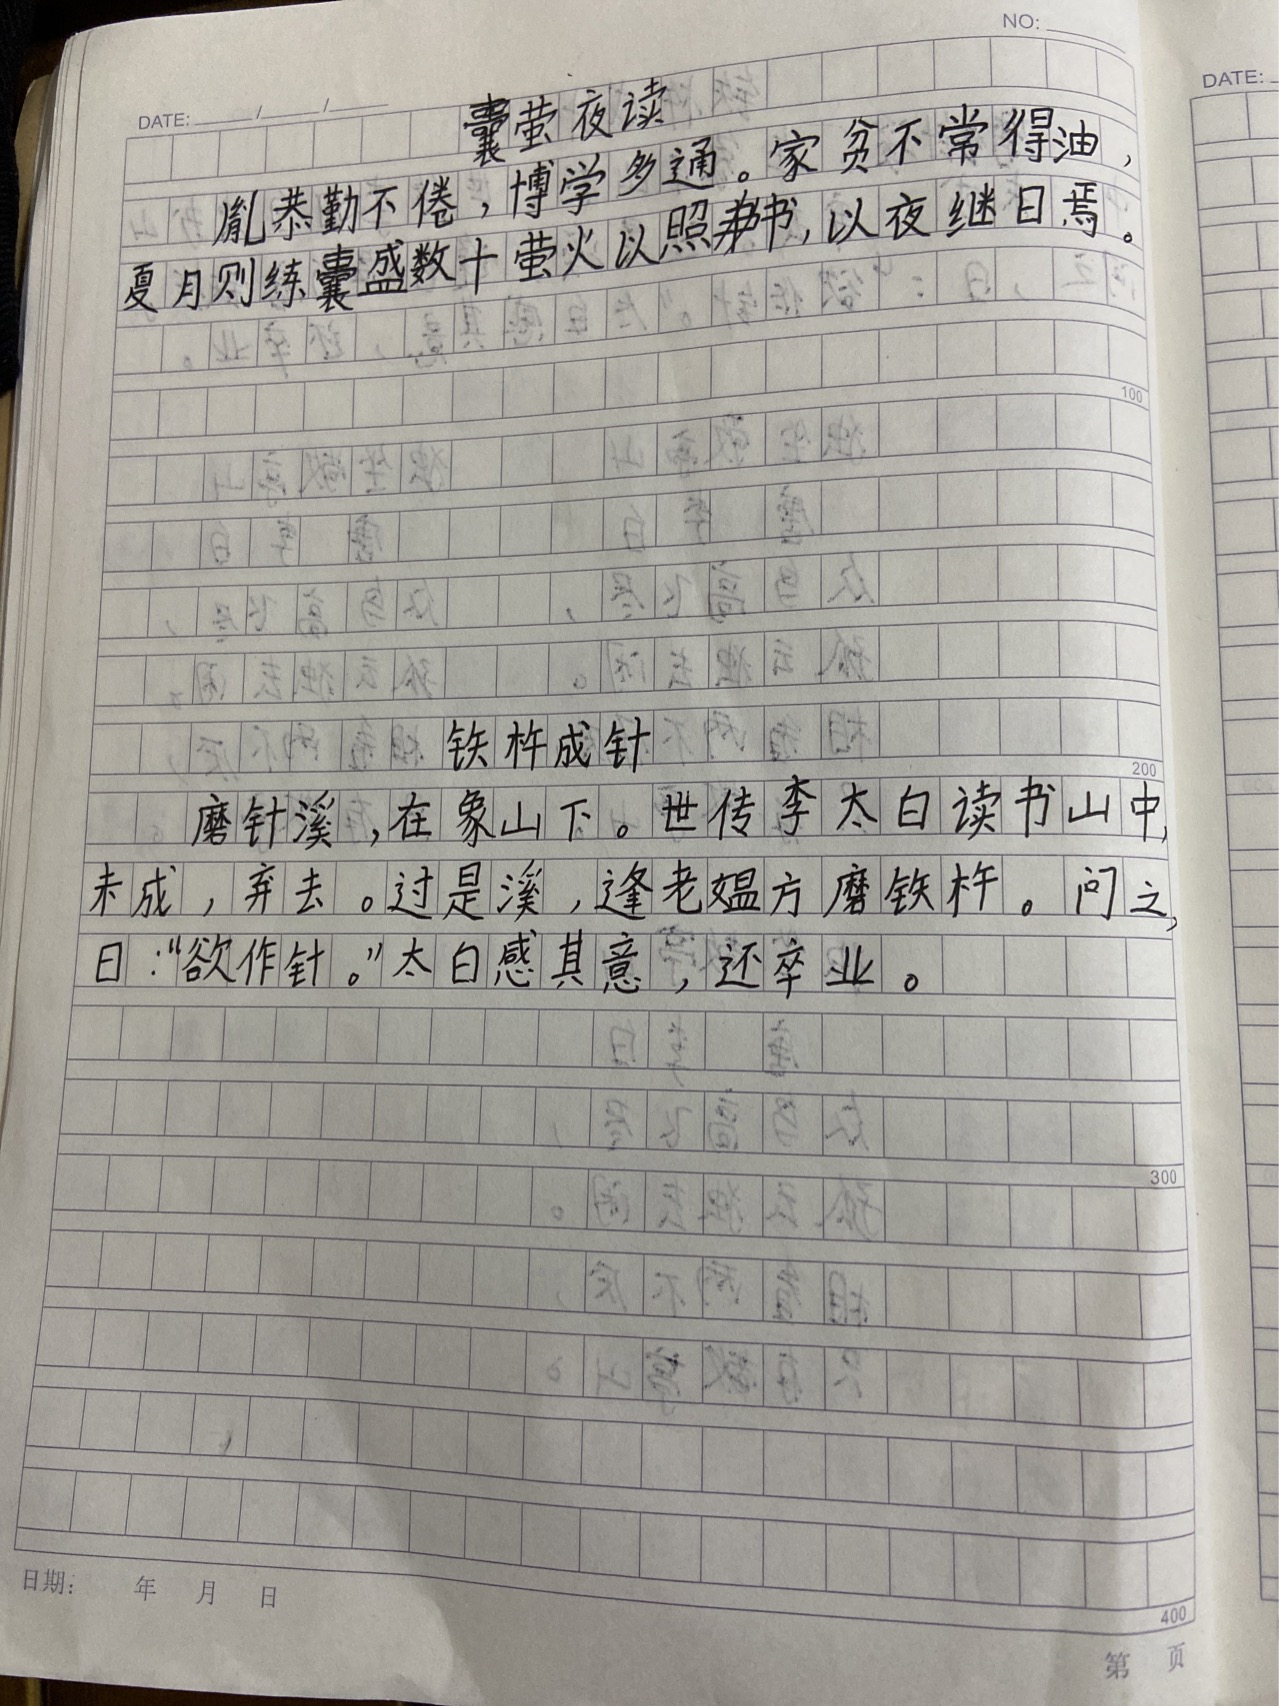 NO:
DATE: / /
DATE:
囊萤夜读
胤恭勤不倦，博学多通。家贫不常得油，
夏月则练囊盛数十萤火以照书，以夜继日焉。
100
铁杵成针
200
磨针溪，在象山下。世传李太白读书山中，
未成，弃去。过是溪，逢老媪方磨铁杵。问之，
曰：“欲作针。”太白感其意，还卒业。
300
400
日期： 年 月 日
第 页